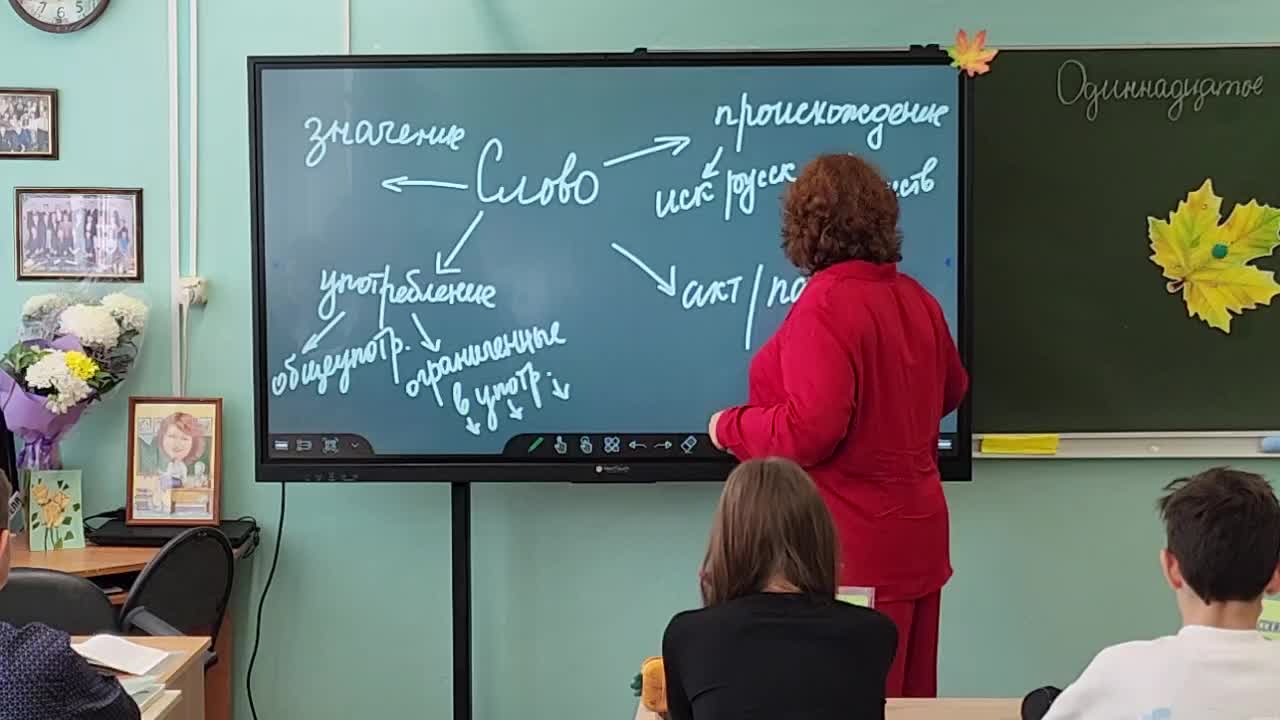 значение
Слово
происхождение
иск русск
употребление
акт/па
общеупотр.
ограниченные
в употр.
Одиннадцатое